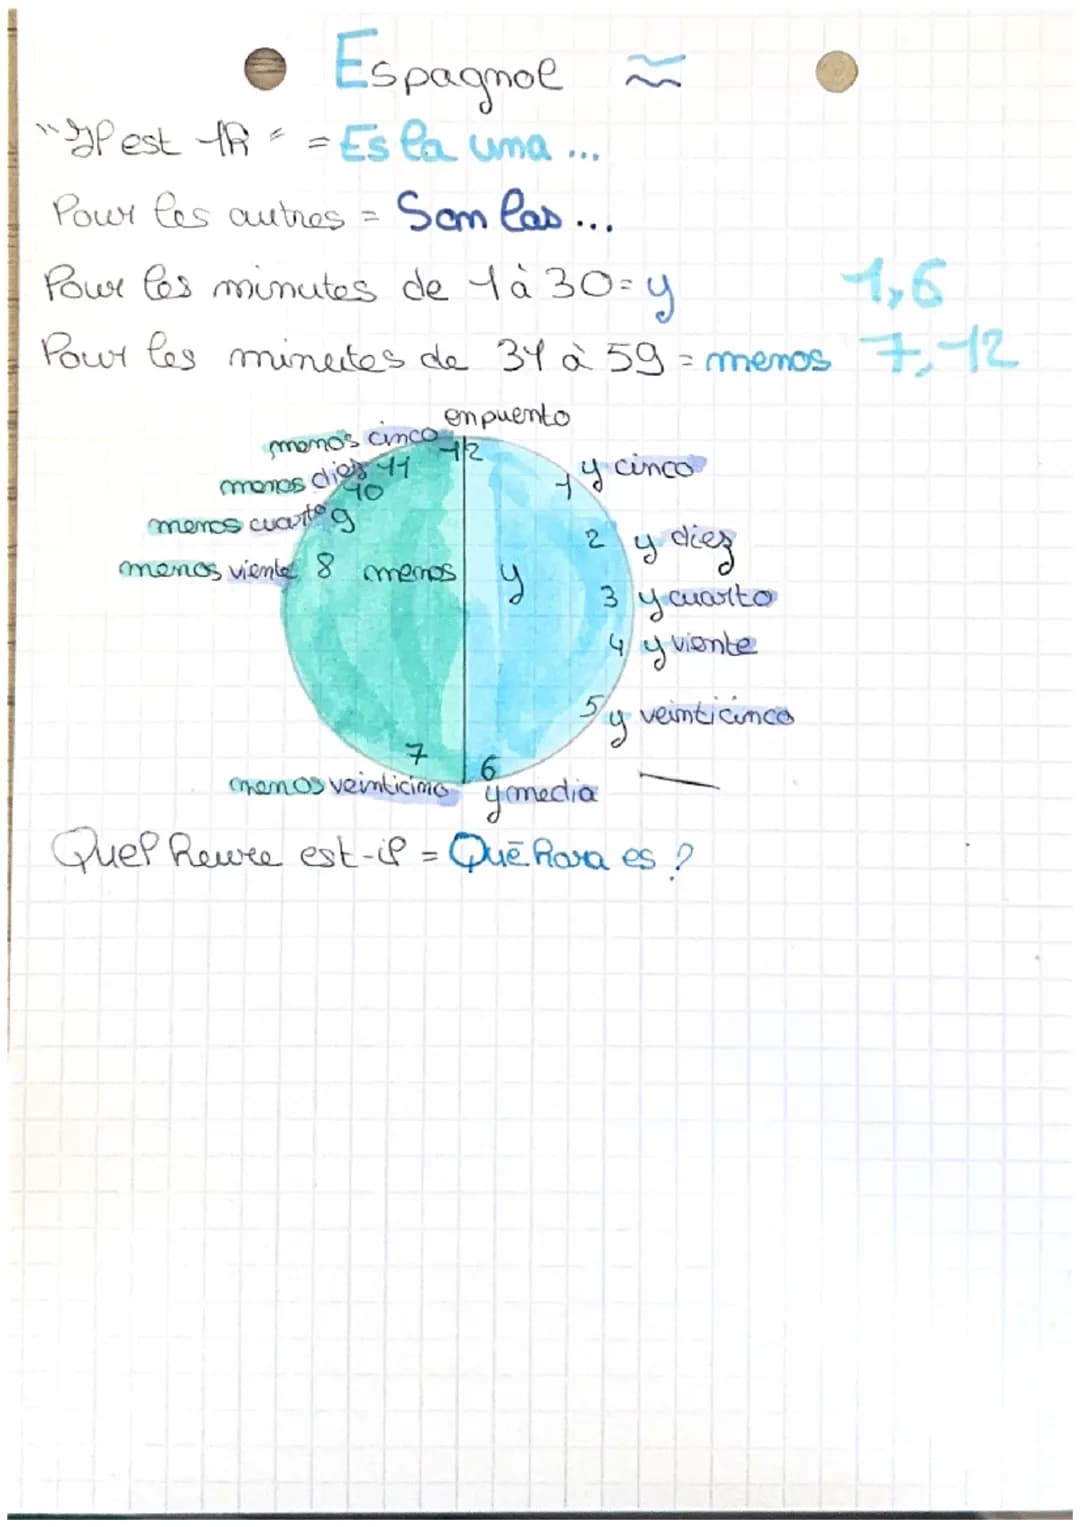 Espagnol
"Il est 1h" = Es la una ...
Pour les autres = Son las ...
Pour les minutes de 1 à 30 = y 1,6
Pour les minutes de 31 à 59 = menos 7,12
en puento
menos cinco 12
menos diez 11 1 y cinco
10
menos cuarto 9 2 y diez
menos viente 8 menos y
3 y cuarto
4 y viente
5 y veinticinco
7 6
menos veinticinco y media
Quel heure est-il = Qué hora es ?